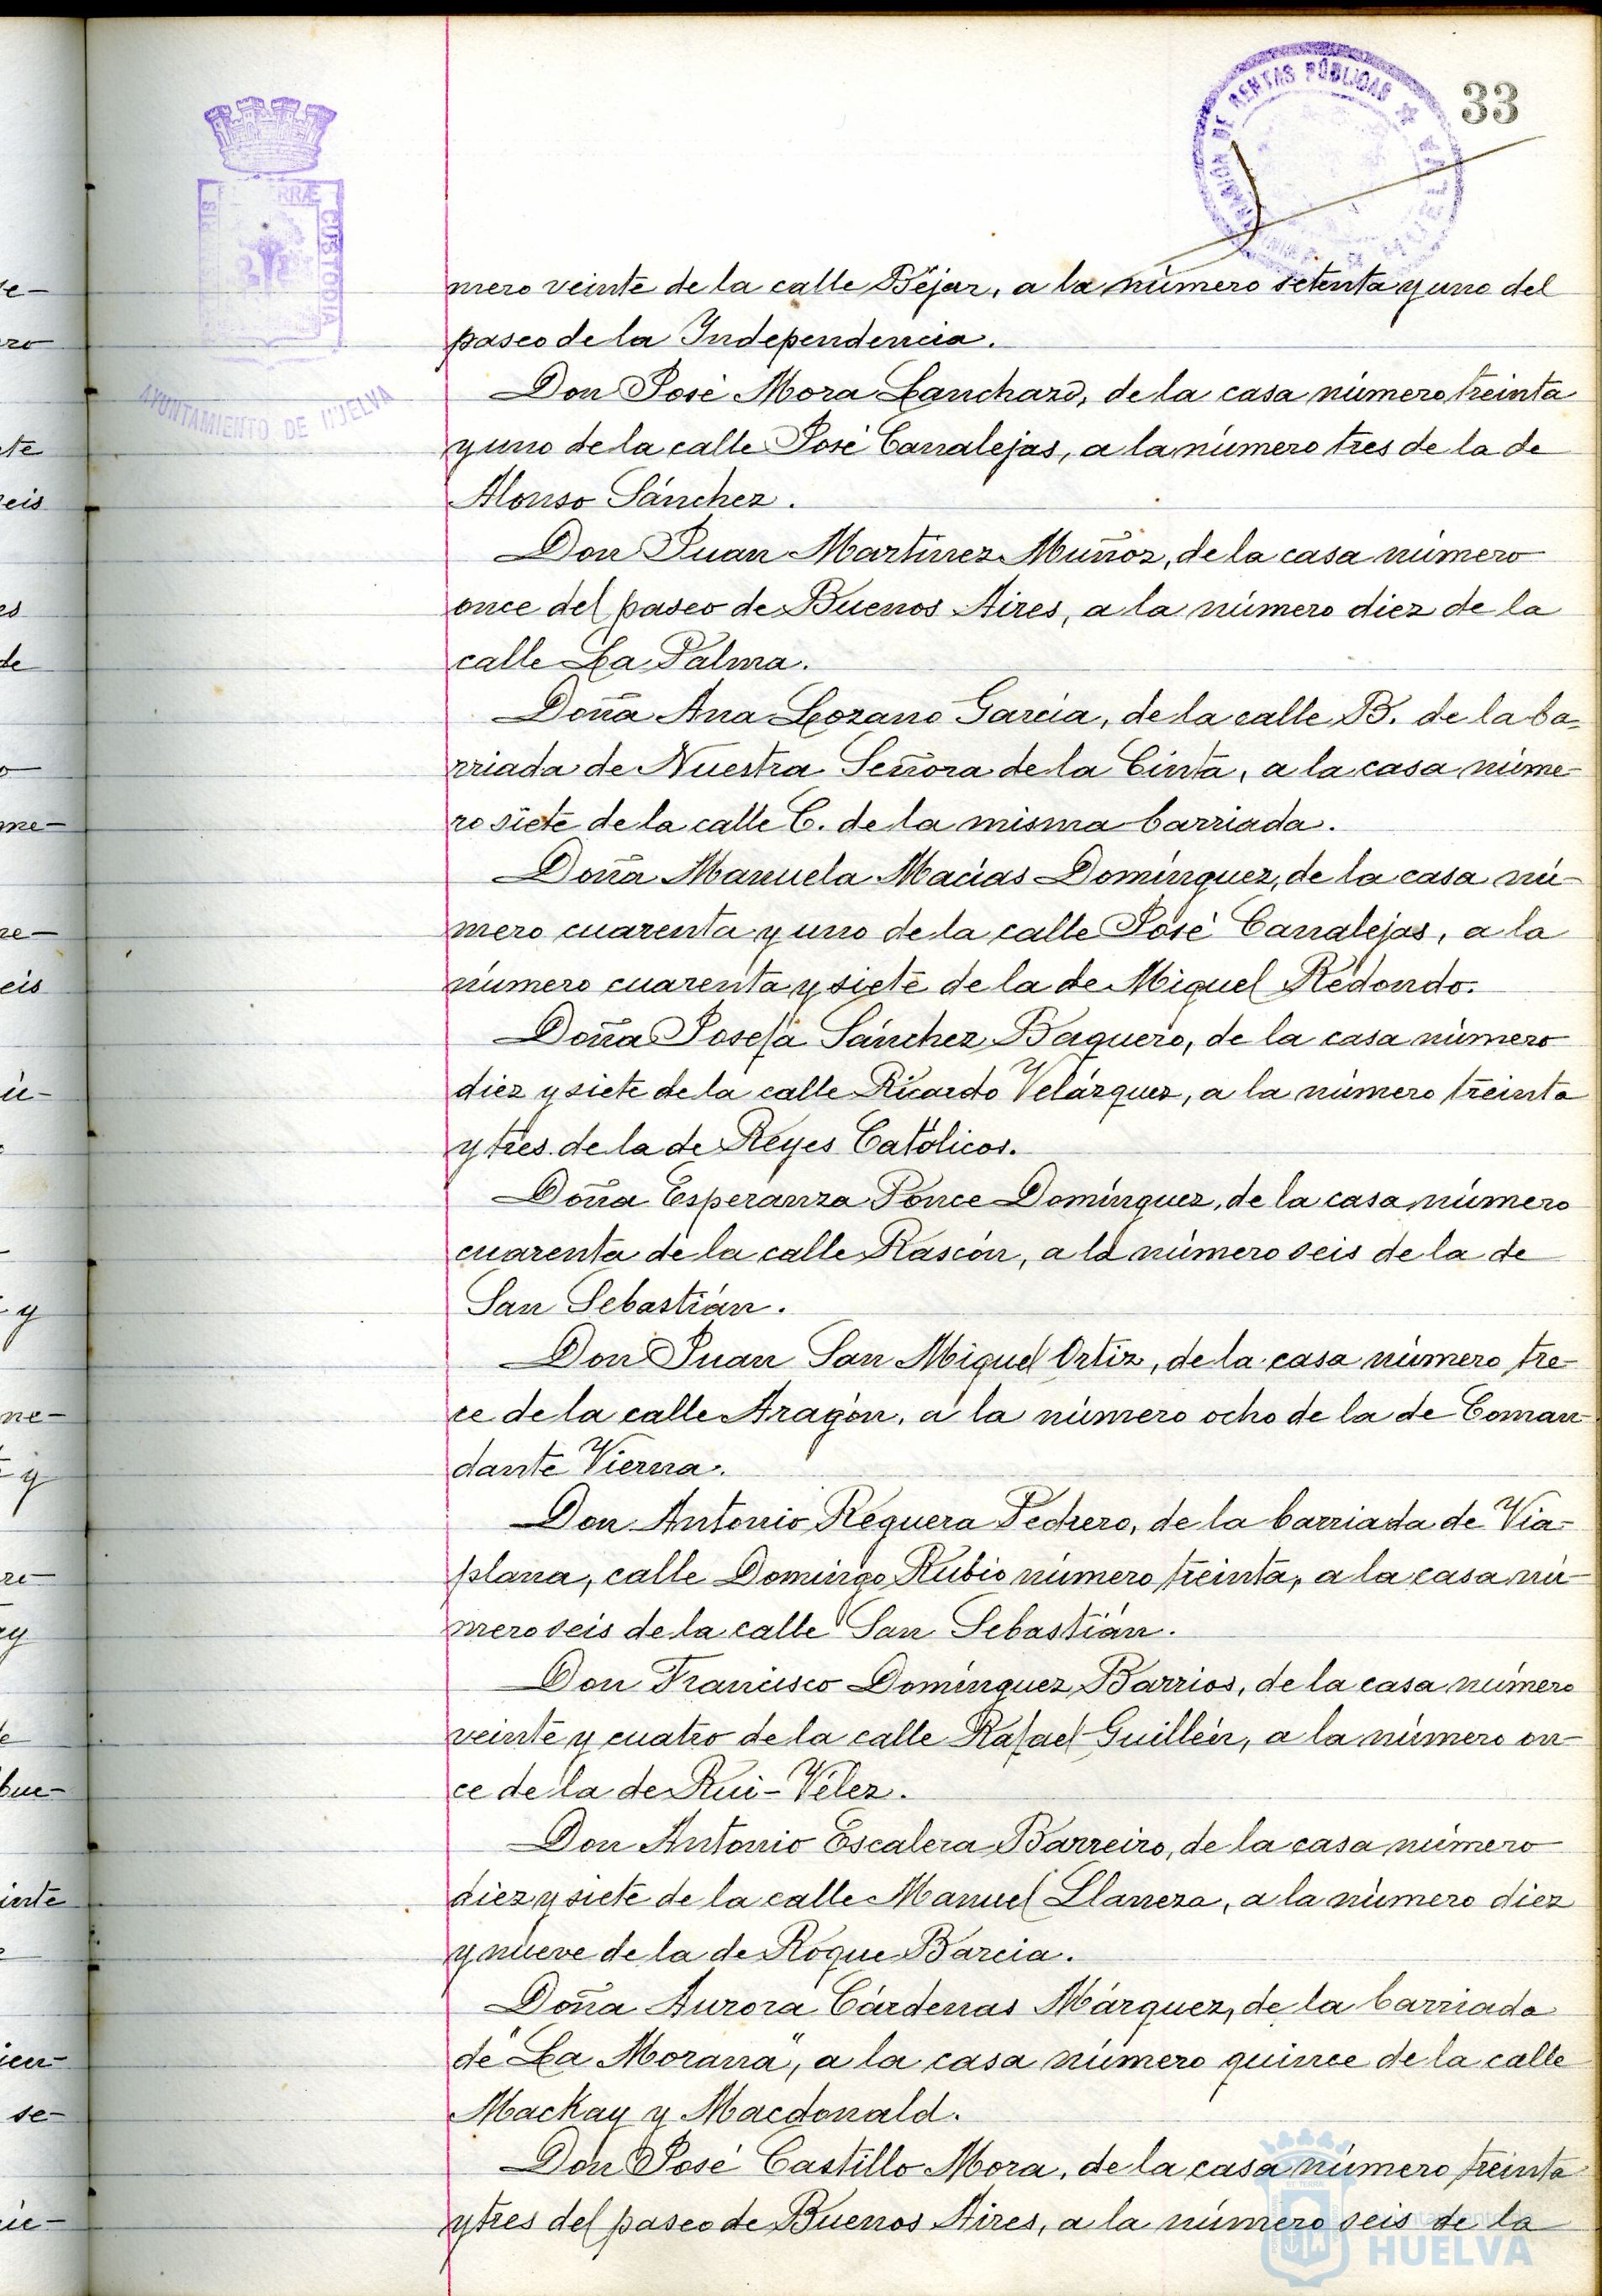 33
ADMINISTRACIÓN DE RENTAS PÚBLICAS
HUELVA
CUSTODIA
AYUNTAMIENTO DE HUELVA
mero veinte de la calle Béjar, a la número setenta y uno del
paseo de la Independencia.
Don José Mora Lanchazo, de la casa número treinta
y uno de la calle José Canalejas, a la número tres de la de
Alonso Sánchez.
Don Juan Martínez Muñoz, de la casa número
once del paseo de Buenos Aires, a la número diez de la
calle La Palma.
Doña Ana Lozano García, de la calle B. de la ba-
rriada de Nuestra Señora de la Cinta, a la casa núme-
ro siete de la calle C. de la misma barriada.
Doña Manuela Macías Domínguez, de la casa nú-
mero cuarenta y uno de la calle José Canalejas, a la
número cuarenta y siete de la de Miguel Redondo.
Doña Josefa Sánchez Baquero, de la casa número
diez y siete de la calle Ricardo Velázquez, a la número treinta
y tres de la de Reyes Católicos.
Doña Esperanza Ponce Domínguez, de la casa número
cuarenta de la calle Rascón, a la número seis de la de
San Sebastián.
Don Juan San Miguel Ortiz, de la casa número tre-
ce de la calle Aragón, a la número ocho de la de Coman-
dante Vierna.
Don Antonio Reguera Pechero, de la barriada de Via-
plana, calle Domingo Rubio número treinta, a la casa nú-
mero seis de la calle San Sebastián.
Don Francisco Domínguez Barrios, de la casa número
veinte y cuatro de la calle Rafael Guillén, a la número on-
ce de la de Rui-Vélez.
Don Antonio Escalera Barreiro, de la casa número
diez y siete de la calle Manuel Llaneza, a la número diez
y nueve de la de Roque Barcia.
Doña Aurora Cárdenas Márquez, de la barriada
de "La Morana", a la casa número quince de la calle
Mackay y Macdonald.
Don José Castillo Mora, de la casa número treinta
y tres del paseo de Buenos Aires, a la número seis de la
HUELVA